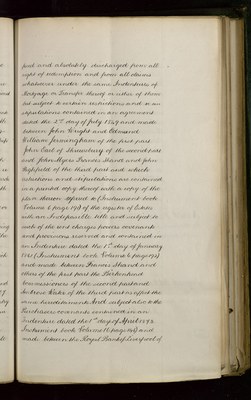 paid and absolutely discharged from all
right of redemption and from all claims
whatsoever under the same Indentures of
Mortgage or Transfer thereof or either of them
but subject to certain restrictions and to an
stipulations contained in an agreement
dated the 2nd day of July 1849 and made
between John Wright and Edmund
William Jerningham of the first part
John Earl of Shrewsbury of the second part
and John Myers Francis Shand and John
Hopfield of the third part and which
restrictions and stipulations are contained
in a printed copy thereof with a copy of the
plan thereon affixed to (Instrument book
Volume 6 page 193) of the register of Estates
with an Indefeasible title and subject to
such of the rent charges powers covenants
and provisions reserved and contained in
an Indenture dated the 1st day of January
1861 (Instrument book Volume 6 page 194)
and made between Francis Shand and
others of the first part the Birkenhead
Commissioners of the second part and
Andrew Ricke of the third part as affect the
same hereditaments And subject also to the
Purchasers covenants contained in an
Indenture dated the 1st day of April 1893
Instrument book Volume 10 page 140) and
made between the Royal Bank of Liverpool of